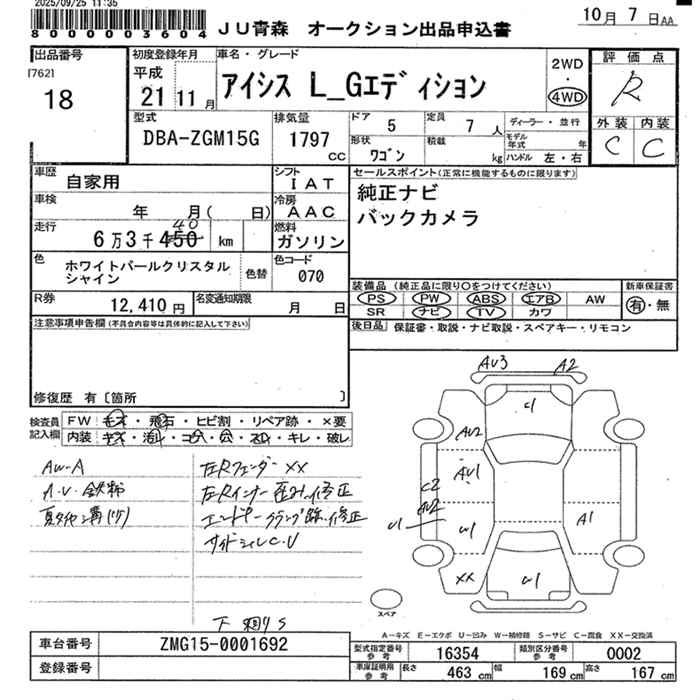 2025/09/25 11:35
8 0 0 0 0 0 3 6 0 4
JU青森 オークション出品申込書
10月 7日 AA
出品番号
[762]
18
初度登録年月
平成
21 11月
車名・グレード
アイシス L_Gエディション
2WD
・
4WD
評価点
R
外装 内装
C C
型式
DBA-ZGM15G
排気量
1797 CC
ドア 5
定員 7人
ディーラー・並行
形状 ワゴン
積載 kg
モデル年式 年
ハンドル 左・右
車歴 自家用
シフト IAT
車検 年 月( 日)
冷房 AAC
走行 6万3千450 km
40
燃料 ガソリン
色 ホワイトパールクリスタルシャイン
色替
色コード 070
R券 12,410円
名変通知期限 月 日
セールスポイント(正常に機能するものに限ります)
純正ナビ
バックカメラ
装備品 (純正品に限り○をつけてください)
PS PW ABS エアB AW
SR ナビ TV カワ
新車保証書
有・無
後日品 保証書・取説・ナビ取説・スペアキー・リモコン
注意事項申告欄(不具合内容等は具体的に記入して下さい)
修復歴 有〔箇所 〕
検査員記入欄
FW キズ・飛石・ヒビ割・リペア跡・×要
内装 キズ・汚れ・コゲ・穴・スレ・キレ・破レ
AW-A
夏タイヤ溝
左Rフェンダー XX
左Rインナー 修正
サイドシルC.U
下 S
AU3 A2
U1
AU2
AU1
C2
AU2
U1
U1
A1
XX
U1
スペア
A-キズ E-エクボ U-凹み W-補修跡 S-サビ C-腐食 XX-交換済
車台番号 ZMG15-0001692
登録番号
型式指定番号 参考 16354
類別区分番号 参考 0002
車庫証明用 参考 長さ 463 cm 幅 169 cm 高さ 167 cm